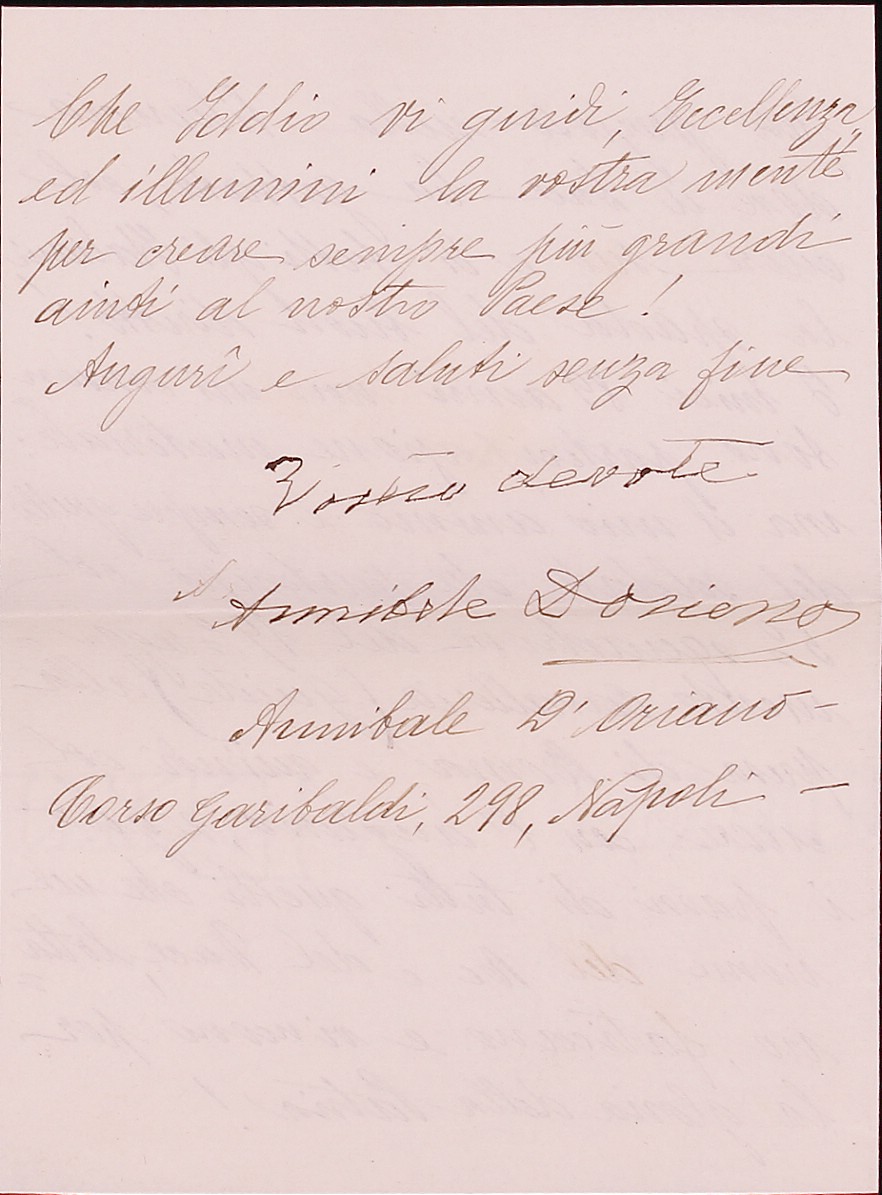 Che Iddio vi guidi, Eccellenza,
ed illumini la vostra mente
per creare sempre più grandi
aiuti al nostro Paese!
Augurî e saluti senza fine
Vostro devote
Annibale Doriano
Annibale D'Oriano -
Corso Garibaldi, 298, Napoli -